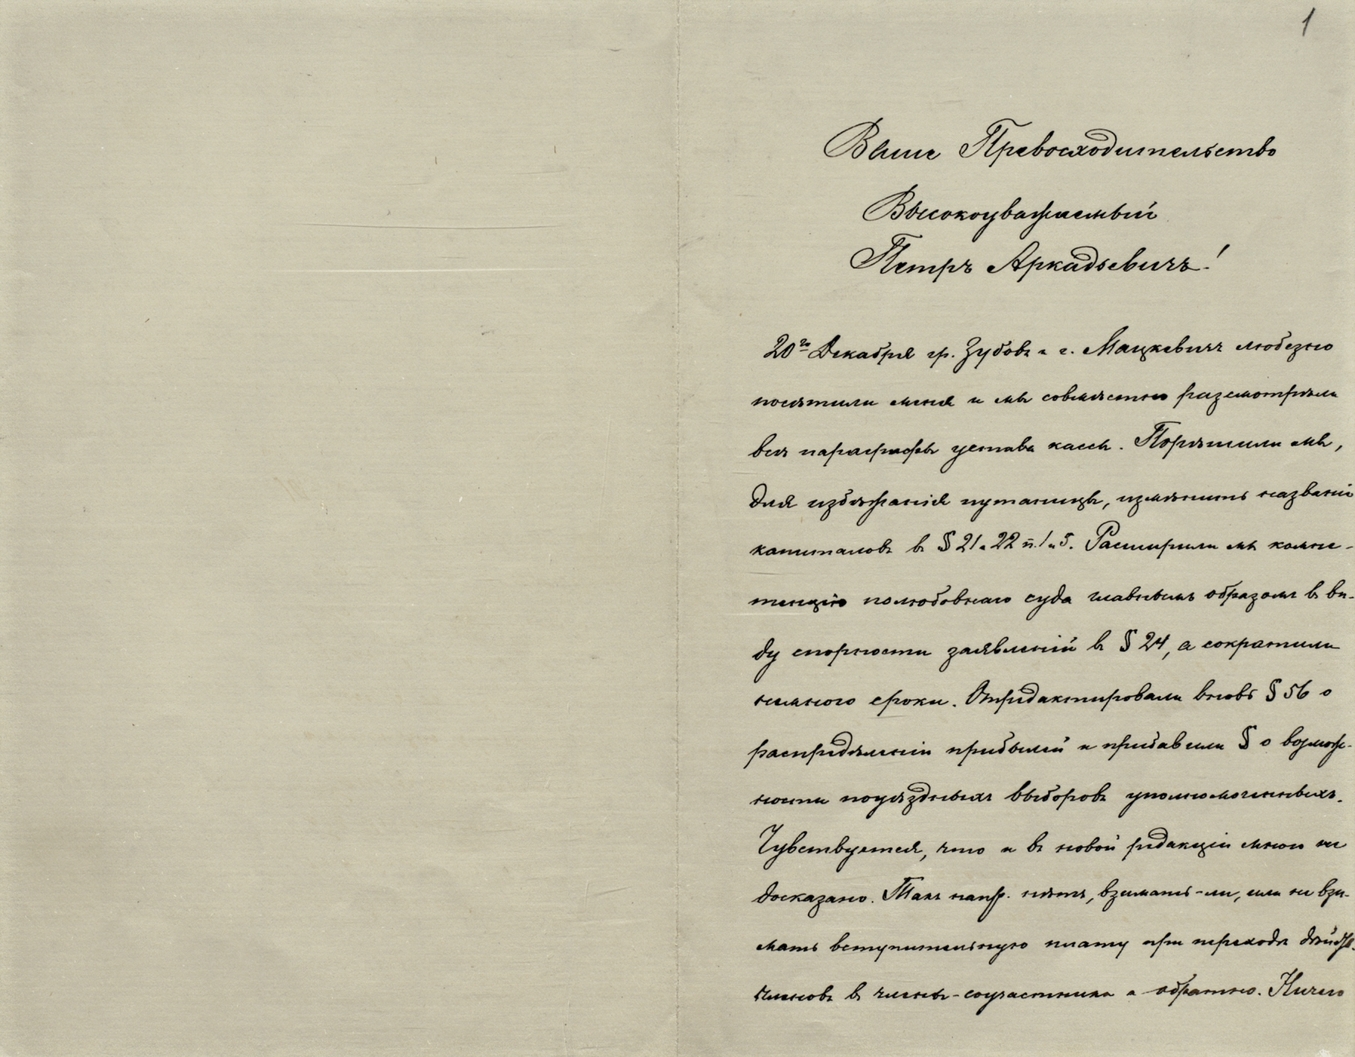 1
Ваше Превосходительство
Высокоуважаемый
Петръ Аркадьевичъ!
20го Декабря гр. Зубовъ и г. Мацкевичъ любезно
посѣтили меня и мы совмѣстно разсмотрѣли
всѣ параграфы устава кассы. Порѣшили мы,
для избѣжанія путаницы, измѣнить названія
капиталовъ в § 21 и 22 п. 1 и 5. Расширили мы компе-
тенцію полюбовнаго суда главнымъ образомъ в ви-
ду спорности заявленій в § 24, а сократили
немного сроки. Отредактировали вновь § 56 о
распредѣленіи прибылей и прибавили § о возмож-
ности поуѣздныхъ выборовъ уполномоченныхъ.
Чувствуется, что и въ новой редакціи много не
досказано. Такъ напр. нѣтъ, взимать-ли, или не взи-
мать вступительную плату при переходѣ дѣйств.
членовъ в члены-соучастники и обратно. Ничего